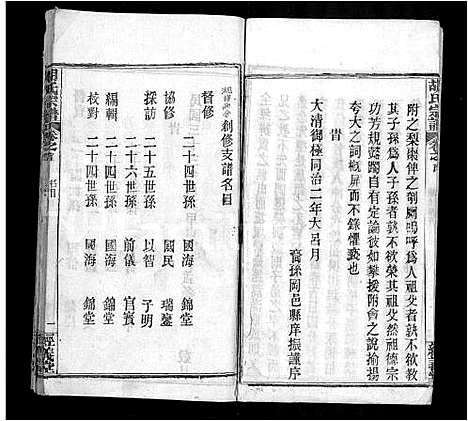 胡氏宗譜
附之梨棗俾之剞劂嗚呼爲人子孫者孰不欲教
其子孫爲人子孫者孰不欲榮其祖父然祖德宗
功芳規懿躅自有定論彼如攀援附會之說揄揚
夸大之詞槪屏而不錄懼褻也
旹
大清御極同治二年大呂月
裔孫岡邑縣庠振謹序
創修支譜名目
督修 二十四世孫 國海 錦堂
協修 國民 瑞鑒
採訪 二十五世孫 以智 子明
二十六世孫 前儀 官賓
編輯 二十四世孫 國海 錦堂
校對 二十四世孫 國海 錦堂
胡氏宗譜